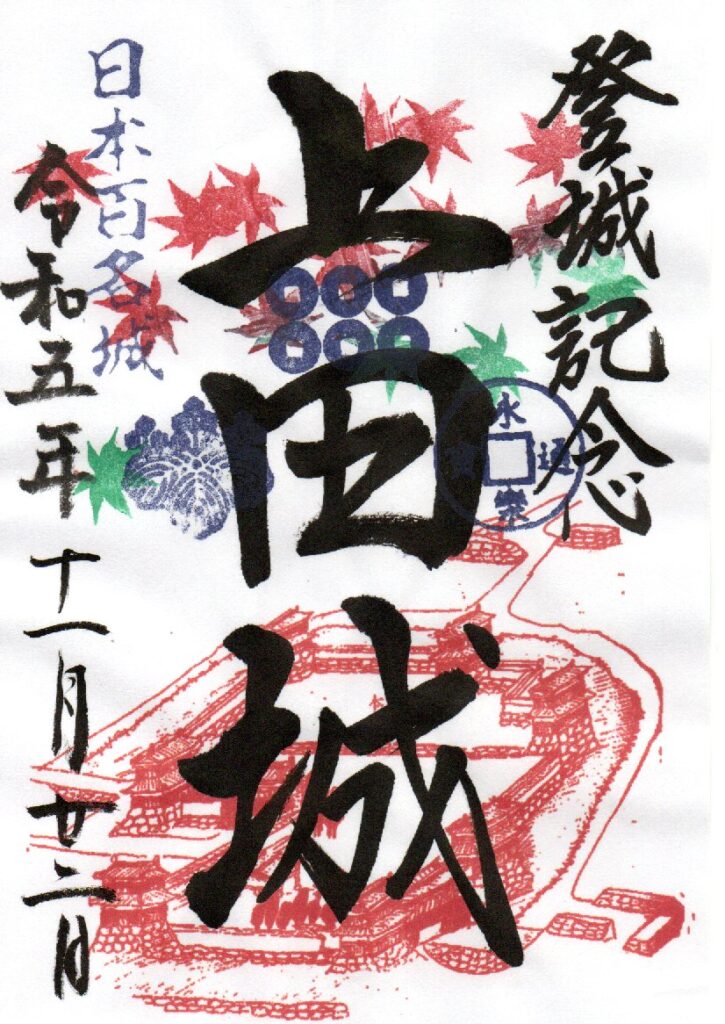 登城記念
上田城
永樂通寳
日本百名城
令和五年十一月廿二日